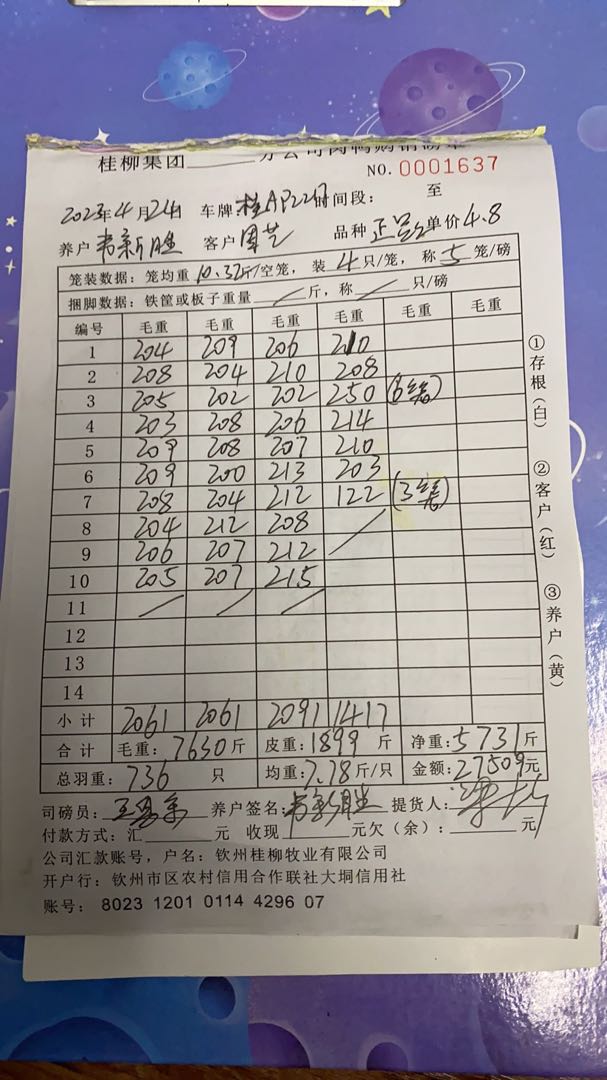 桂柳集团 分公司肉鸭购销磅单
NO. 0001637
2023年4月24日 车牌:桂AP22 时间段: 至
养户 韦新胜 客户 周艺 品种 单价4.8
笼装数据: 笼均重 10.32斤/空笼, 装 4 只/笼, 称 5 笼/磅
捆脚数据: 铁筐或板子重量 / 斤, 称 / 只/磅
编号 毛重 毛重 毛重 毛重 毛重 毛重
1 204 209 206 210
2 208 204 210 208
3 205 202 202 250 (6笼)
4 203 208 206 214
5 209 208 207 210
6 209 200 213 203
7 208 204 212 122 (3笼)
8 204 212 208 /
9 206 207 212
10 205 207 215
11 / / /
12
13
14
小计 2061 2061 2091 1417
合计 毛重: 7630斤 皮重: 1899 斤 净重: 5731斤
总羽重: 736 只 均重: 7.78斤/只 金额: 27509元
司磅员: 养户签名: 韦新胜 提货人:
付款方式: 汇 元 收现 元欠(余): 元
公司汇款账号, 户名: 钦州桂柳牧业有限公司
开户行: 钦州市区农村信用合作联社大垌信用社
账号: 8023 1201 0114 4296 07
①存根(白)
②客户(红)
③养户(黄)